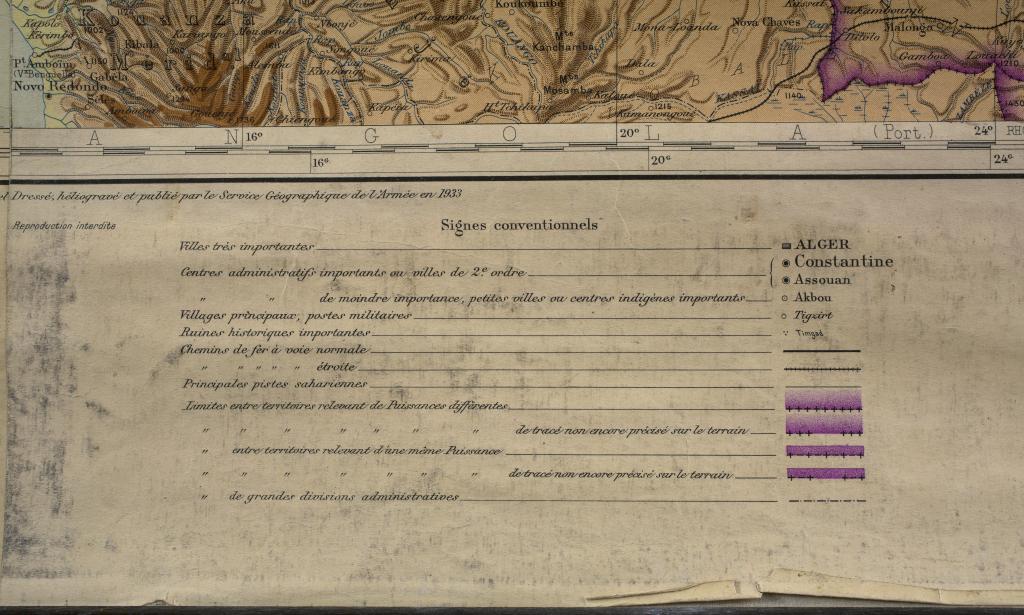 Koukoumbé
Kapolo
Kouanza
Nbonjé
Chasengou
Mona-Loanda
Nova Chaves
Kassai
Nakamboungi
Malonga
Kérimba
1002
Karianga
Lombe
Dilolo
Ribala
Karima
Kanchamba
Gamboa
Pt Amboim
1150
Meridal
Kimbongo
Dala
(Va Benguella)
Gabela
Mosamba
Novo Redondo
KASSAI
1140
1210
Seles
Kapeia
Ht Tchikapa
1215
Kamanongoué
ZAMBEZE
1450
A N 16° G O 20° L A (Port.) 24° RH
16° 20° 24°
Dressé, héliogravé et publié par le Service Géographique de l'Armée en 1933
Reproduction interdite
Signes conventionnels
Villes très importantes ALGER
Centres administratifs importants ou villes de 2e ordre Constantine
Assouan
" " de moindre importance, petites villes ou centres indigènes importants Akbou
Villages principaux, postes militaires Tigzirt
Ruines historiques importantes Timgad
Chemins de fer à voie normale
" " " " " étroite
Principales pistes sahariennes
Limites entre territoires relevant de Puissances différentes
" " " " " " " de tracé non encore précisé sur le terrain
" entre territoires relevant d'une même Puissance
" " " " " " " de tracé non encore précisé sur le terrain
" de grandes divisions administratives